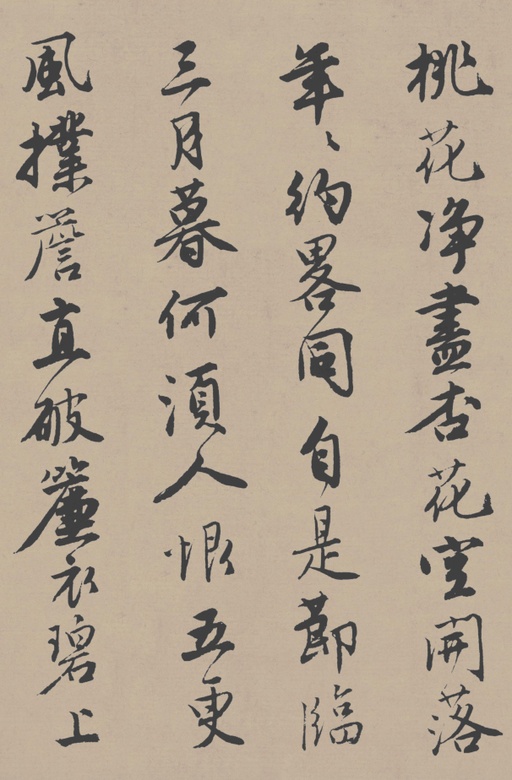 桃花净盡杏花空開落
年〻約畧同自是節臨
三月暮何須人恨五更
風撲簷直破簾衣碧上